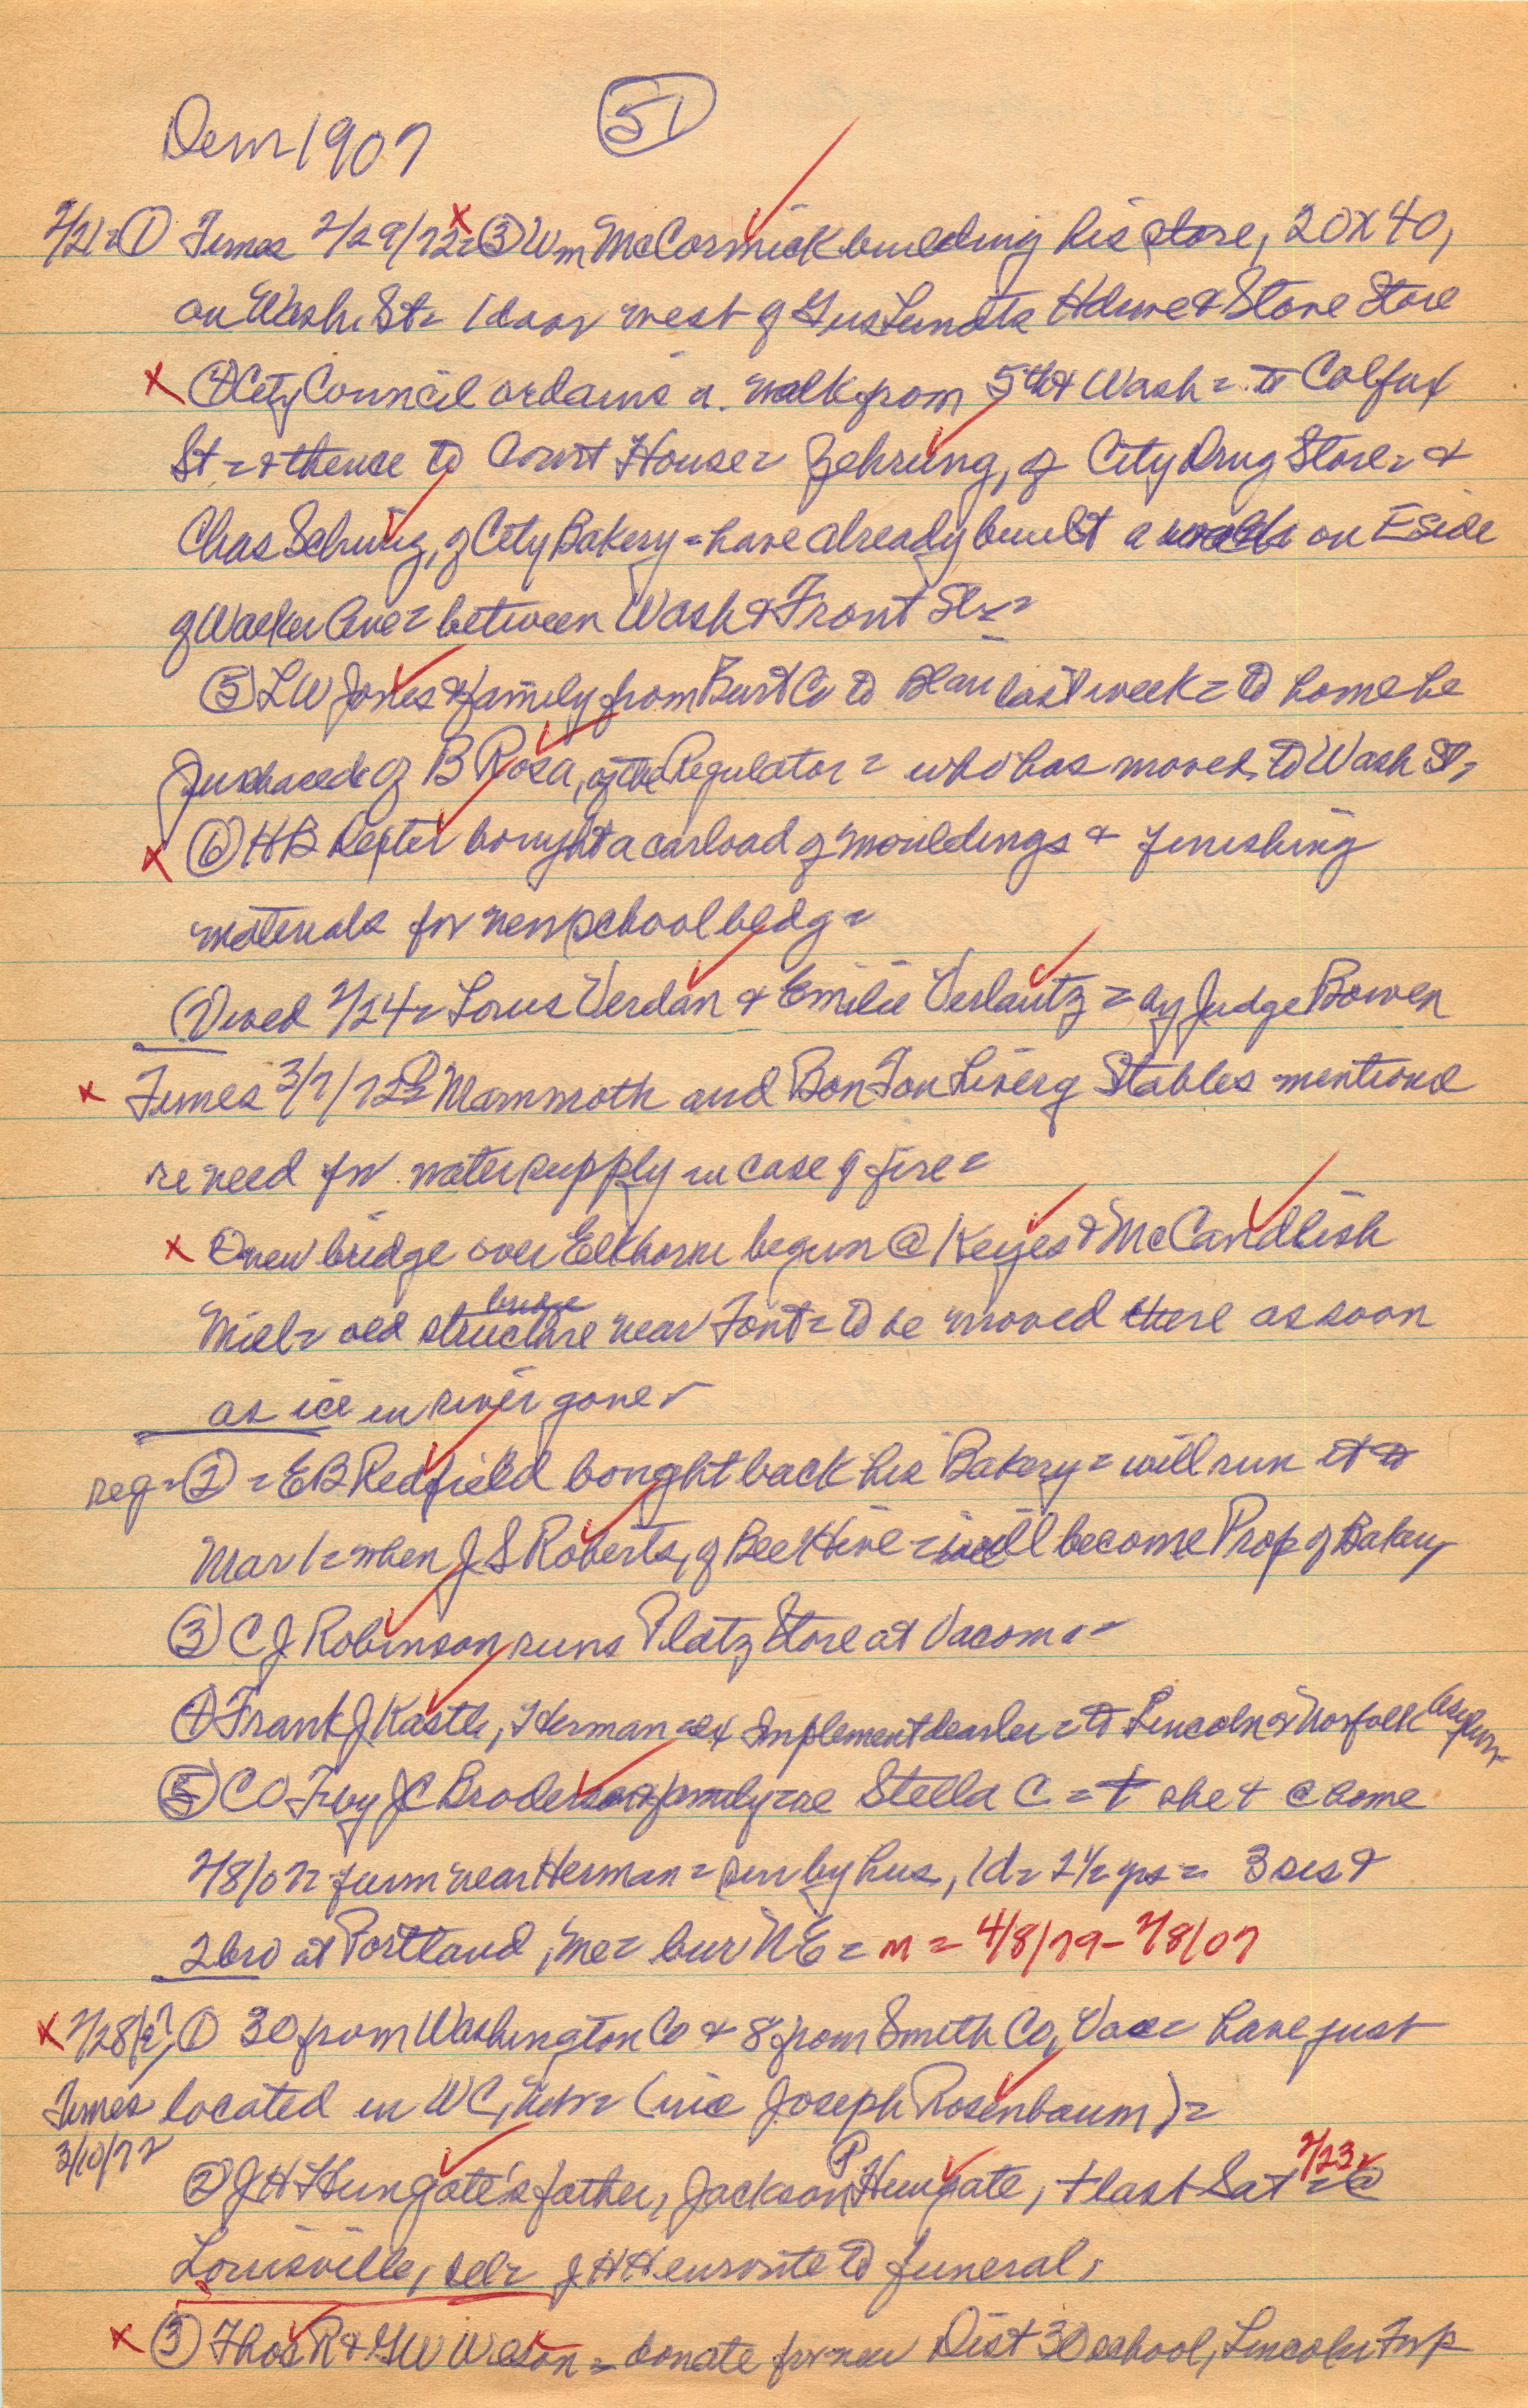 Dem 1907 (51)
2/21= ① Times 2/29/72= ③ Wm McCormick building his store, 20X40,
on Wash. St= 1 door west of Gus Lundts Hdwe & Stove Store
④ City Council ordains a walk from 5th & Wash = to Colfax
St = & thence to Court House = Gehrung, of City Drug Store = &
Chas Schwig, of City Bakery = have already built a walk on E side
of Walker Ave = between Wash & Front Sts =
⑤ L W Jones & family from Burt Co to Blair last week = to home he
purchased of B Rosa, of the Regulator = who has moved to Wash St,
⑥ H B Dexter bought a carload of mouldings & finishing
materials for new school bldg =
⑦ wed 2/24 = Louis Verdan & Emilie Verlautz = by Judge Bowen
Times 3/7/72 = ① Mammoth and Bon Ton Livery Stables mentioned
re need for water supply in case of fire =
② new bridge over Elkhorn begun @ Keyes & McCandlish
Mill = old structure bridge near Font = to be moved there as soon
as ice in river gone
reg = ② = E B Redfield bought back his Bakery = will run it to
Mar 1 = when J S Roberts, of Bee Hive = will become Prop of Bakery
③ C J Robinson runs Platz Store at Vacoma =
④ Frank J Kastle, Herman = ex Implement dealer = to Lincoln & Norfolk
⑤ C O T by J C Broderson & family = re Stella C = + she + @ home
2/8/07 = farm near Herman = sur by hus, 1d = 2 1/2 yrs = 3 sis &
2 bro at Portland, Me = bur NE = m = 4/8/79 - 2/8/07
2/28 ① 30 from Washington Co & 8 from Smith Co, Va = have just
Times located in WC, Neb = (inc Joseph Rosenbaum) =
3/10/72
② J H Hungate's father, Jackson P Hungate, + last Sat 2/23 = @
Louisville, Ill = J H H enroute to funeral,
③ Thos R & G W Wilson = donate for new Dist 30 school, Lincoln Twp